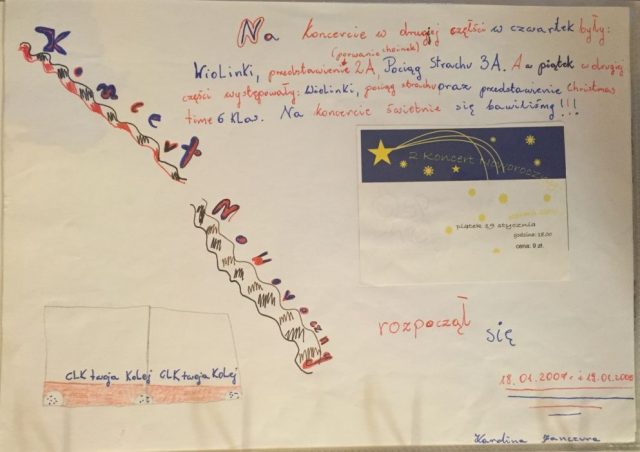 Koncert
Noworoczny
Na koncercie w drugiej części w czwartek były:
(porwanie choinek)
Wiolinki, przedstawienie 2A, Pociąg Strachu 3A. A w piątek w drugiej
części występowały: Wiolinki, pociąg strachu oraz przedstawienie Christmas
time 6 klas. Na koncercie świetnie się bawiliśmy !!!
2 Koncert Noworoczny
piątek 19 stycznia
godzina: 18.00
cena: 9 zł.
rozpoczął się
CLK twoja Kolej CLK twoja Kolej
18.01.2007 i 19.01.2007
Karolina